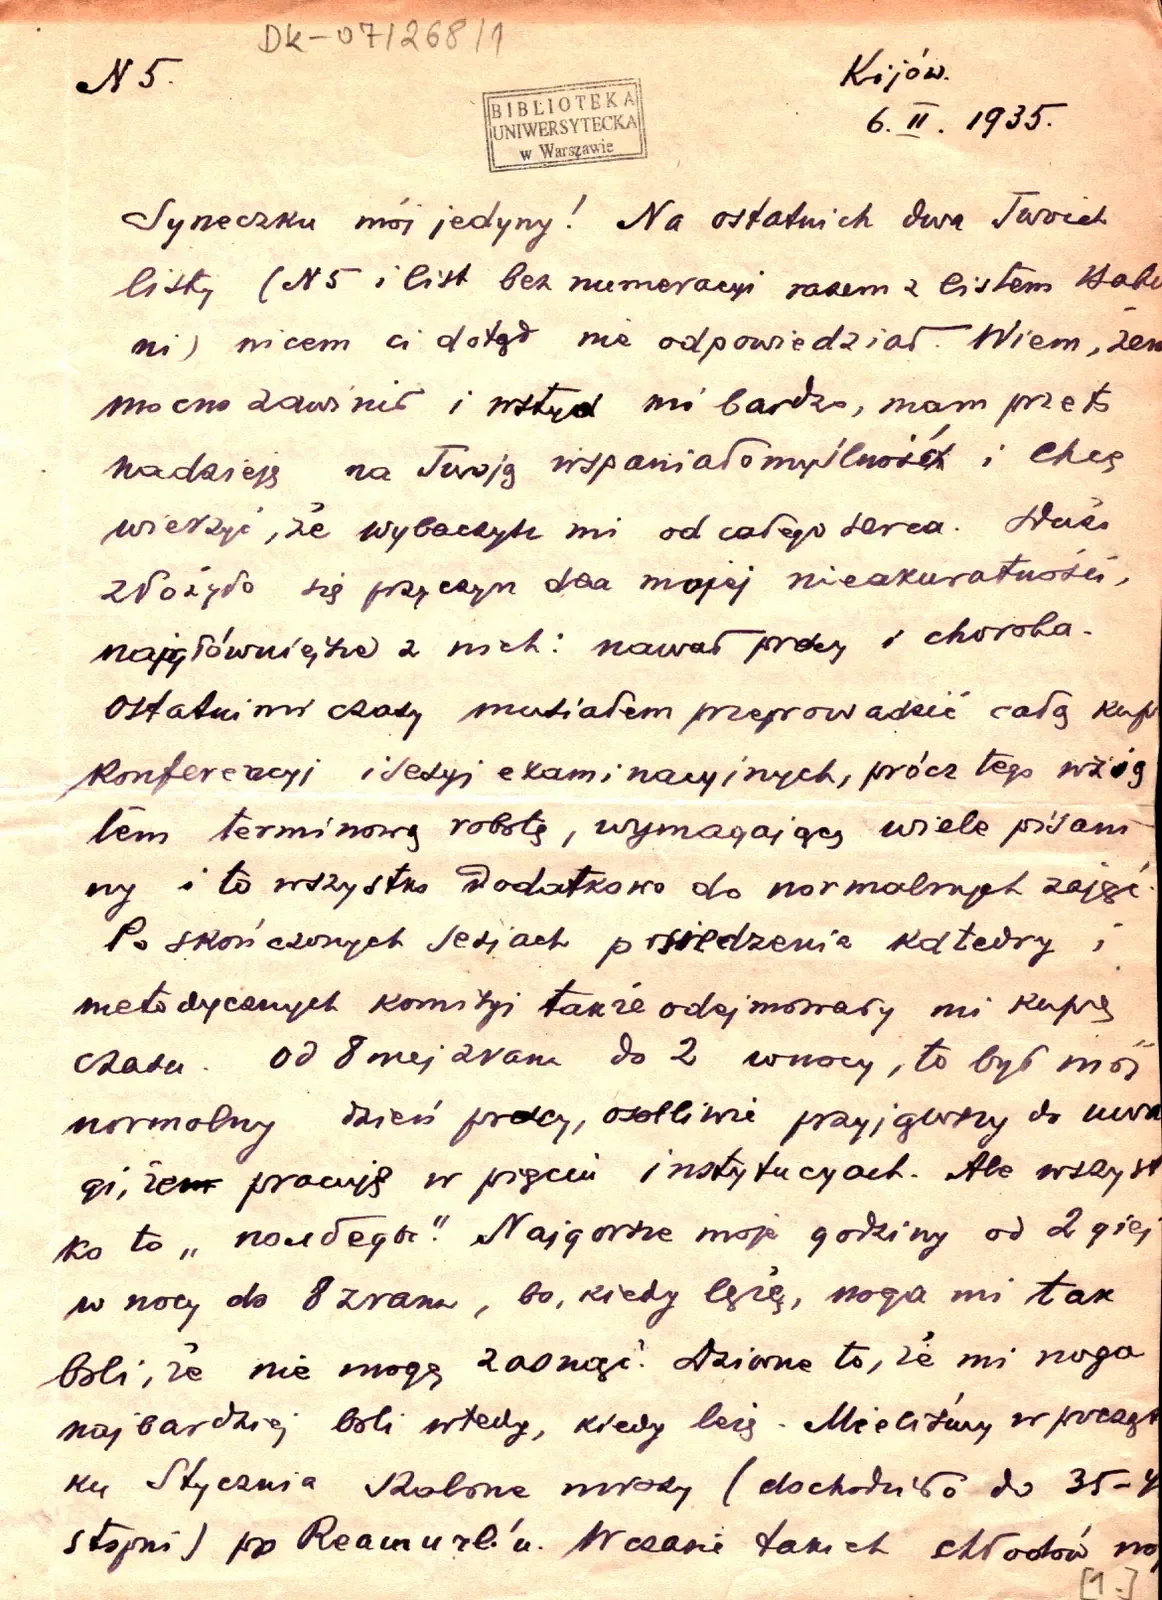 Dk-07/268/1
N 5.
Kijów.
6. II. 1935.
BIBLIOTEKA
UNIWERSYTECKA
w Warszawie
Syneczku mój jedyny! Na ostatnich dwa Twoich
listy (N 5 i list bez numeracyi razem z listem Habu
ni) nicem ci dotąd nie odpowiedział. Wiem, żem
mocno zawinił i wstyd mi bardzo, mam przeto
nadzieję na Twoją wspaniałomyślność i chcę
wierzyć, że wybaczysz mi od całego serca. Dużo
złożyło się przyczyn dla mojej nieakuratności,
najgłówniejsze z nich: nawał pracy i choroba.
Ostatnimi czasy musiałem przeprowadzić całą kupę
konferencyj i sesyj examinacyjnych, prócz tego wzią
łem terminową robotę, wymagającą wiele pisani
ny i to wszystko dodatkowo do normalnych zajęć.
Po skończonych sesjach posiedzenia katedry i
metodycznych komisyj także odejmowały mi kupę
czasu. Od 8 mej zrana do 2 w nocy, to był mój
normalny dzień pracy, osobliwie przyjąwszy do uwa
gi, żem pracuję w pięciu instytucyach. Ale wszyst
ko to „ полбеды". Najgorsze moje godziny od 2 giej
w nocy do 8 zrana, bo, kiedy lężę, noga mi tak
boli, że nie mogę zasnąć. Dziwne to, że mi noga
najbardziej boli wtedy, kiedy leżę. Mieliśmy w począt
ku Stycznia szalone mrozy (dochodziło do 35-4
stopni) po Reamurb'u. W czasie takich chłodów no
[1.]